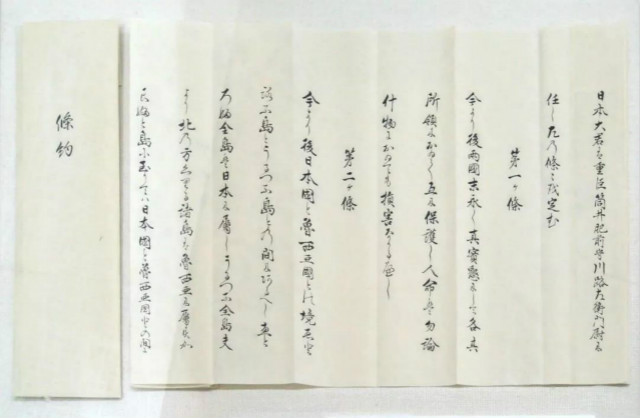 日本大君は重臣筒井肥前守川路左衛門尉に
任し左の條々を定む
第一ヶ條
今より後両國末永く真實懇にして各其
所領におゐて互に保護し人命は勿論
什物におゐても損害なかるへし
第二ヶ條
今より後日本國と魯西亞國との境ゑと
ろふ島とうるつふ島との間に在るへしゑと
ろふ全島は日本に属しうるつふ全島夫
より北の方くりる諸島は魯西亞に属すか
らふと島に至りては日本國と魯西亞國との間に
條約